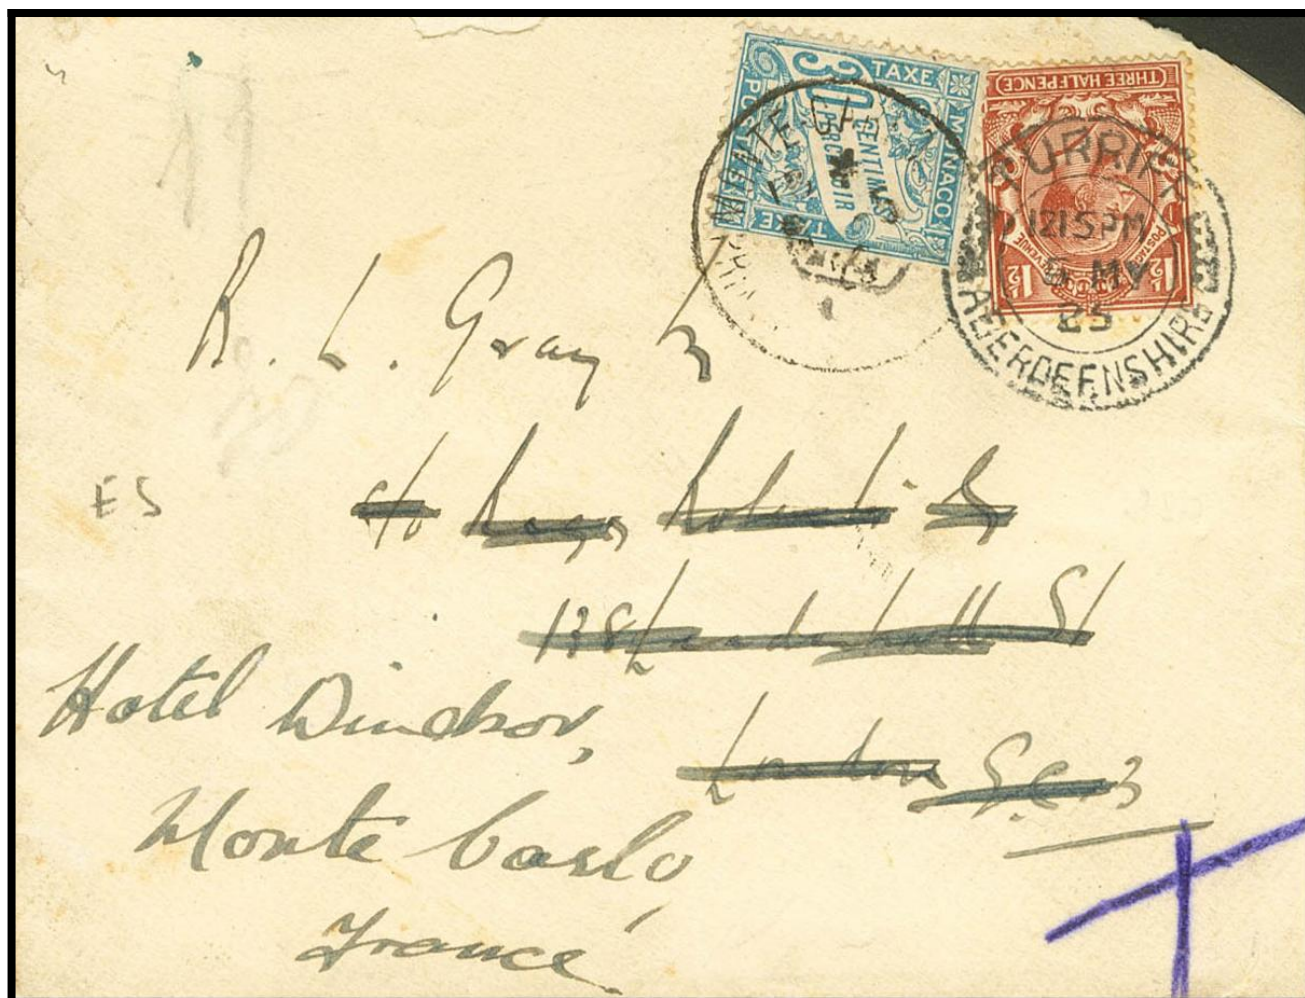 30
CENTIMES
À PERCEVOIR
TAXE
MONACO
TAXE
MONTE-CARLO
THREE HALFPENCE
POSTAGE
REVENUE
1½
1½
TURRIFF
1215PM
6 MY
25
ABERDEENSHIRE
R. L. Gray
ES
c/o
138 Leadenhall St
Hotel Windsor,
London E.C. 3
Monte Carlo
France
T